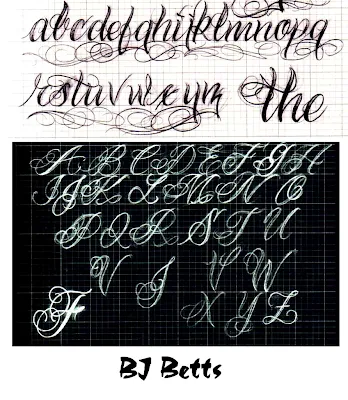 abcdefghijklmnopq
rstuvwxyz the
A B C D E F G H
I J K L M N O
P Q R S T U
V J V W
F X Y Z
BJ Betts